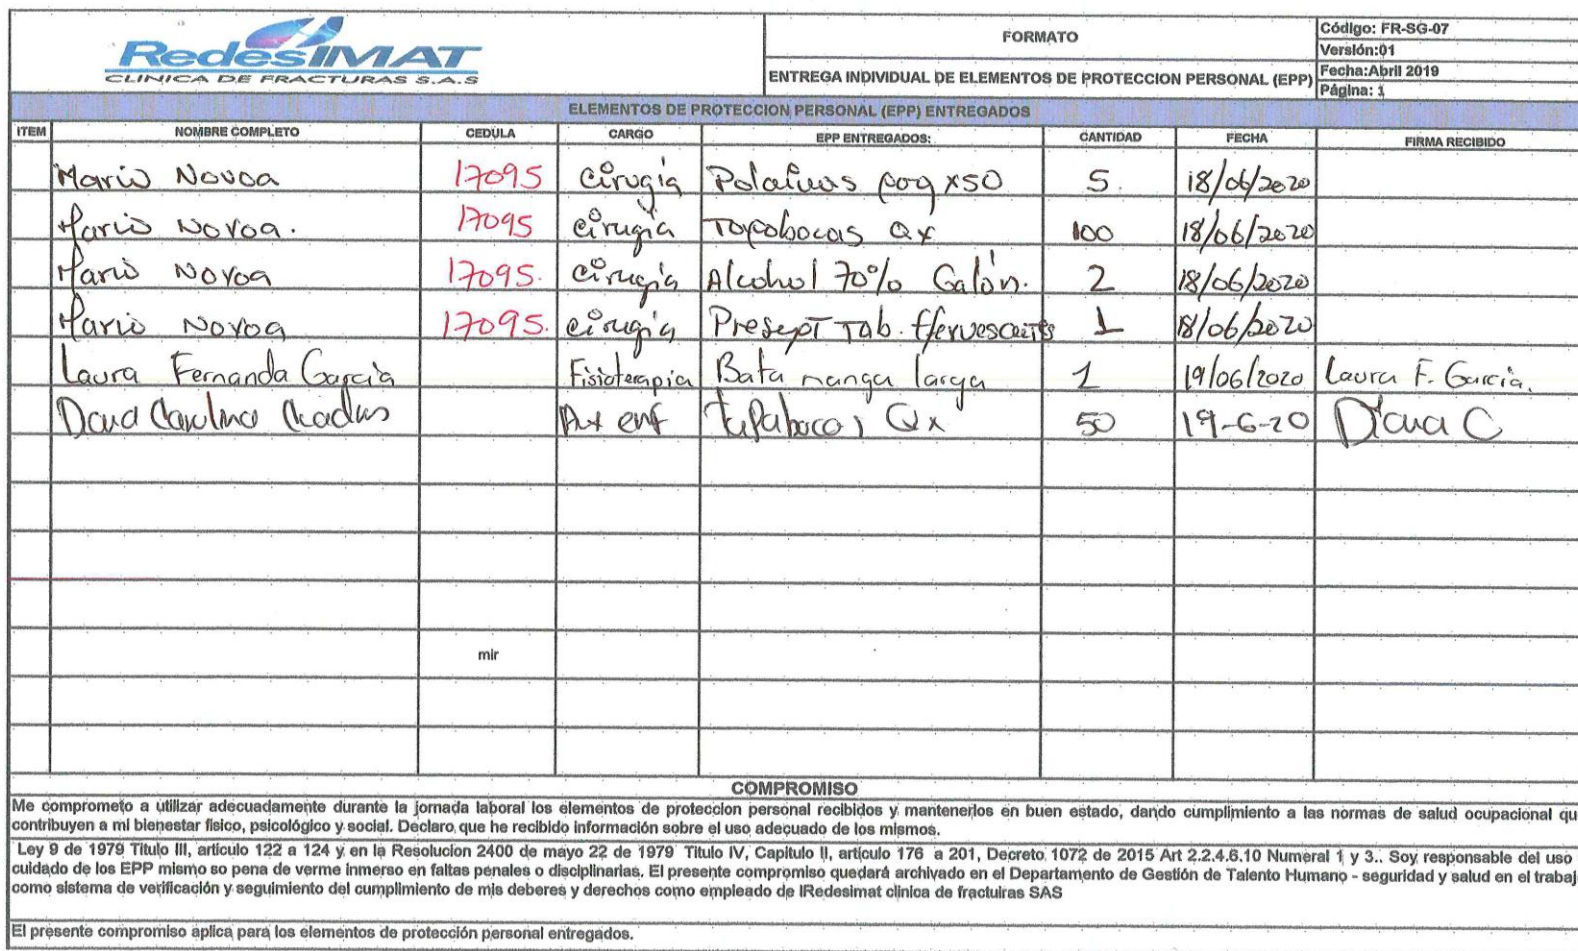 RedesIMAT
CLINICA DE FRACTURAS S.A.S
FORMATO
ENTREGA INDIVIDUAL DE ELEMENTOS DE PROTECCION PERSONAL (EPP)
Código: FR-SG-07
Versión:01
Fecha:Abril 2019
Página: 1
ELEMENTOS DE PROTECCION PERSONAL (EPP) ENTREGADOS
ITEM NOMBRE COMPLETO CEDULA CARGO EPP ENTREGADOS: CANTIDAD FECHA FIRMA RECIBIDO
Mario Novoa 17095 cirugia Polainas paq x50 5. 18/06/2020
Mario Novoa. 17095 cirugia Tapabocas Qx 100 18/06/2020
Mario Novoa 17095. cirugia Alcohol 70% Galón. 2 18/06/2020
Mario Novoa 17095. cirugia Presept Tab. Efervescentes 1 18/06/2020
Laura Fernanda Garcia Fisioterapia Bata manga larga 1 19/06/2020 Laura F. Garcia.
Carolina Aux enf tapabocas Qx 50 19-6-20 Diana C
mir
COMPROMISO
Me comprometo a utilizar adecuadamente durante la jornada laboral los elementos de proteccion personal recibidos y mantenerlos en buen estado, dando cumplimiento a las normas de salud ocupacional qu
contribuyen a mi bienestar fisico, psicológico y social. Declaro que he recibido información sobre el uso adecuado de los mismos.
Ley 9 de 1979 Titulo III, articulo 122 a 124 y en la Resolucion 2400 de mayo 22 de 1979 Titulo IV, Capitulo II, artículo 176 a 201, Decreto 1072 de 2015 Art 2.2.4.6.10 Numeral 1 y 3.. Soy responsable del uso
cuidado de los EPP mismo so pena de verme inmerso en faltas penales o disciplinarias. El presente compromiso quedará archivado en el Departamento de Gestión de Talento Humano - seguridad y salud en el trabaj
como sistema de verificación y seguimiento del cumplimiento de mis deberes y derechos como empleado de IRedesimat clinica de fractuiras SAS
El presente compromiso aplica para los elementos de protección personal entregados.